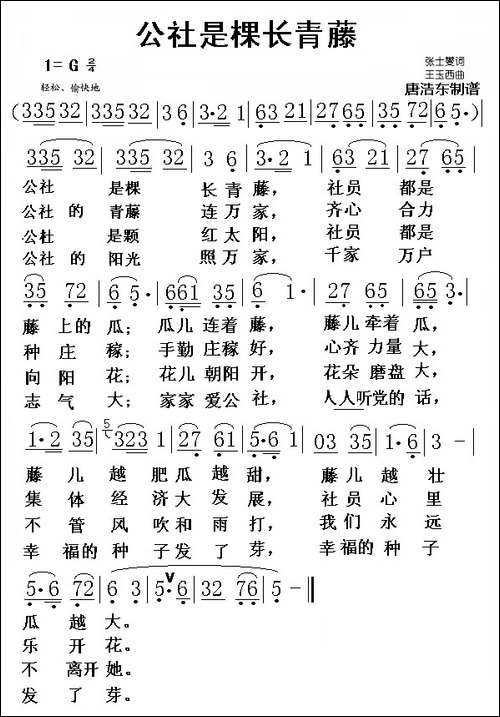 公社是棵长青藤
1= G 2/4
张士燮词
王玉西曲
轻松、愉快地
唐浩东制谱
(335 32 | 335 32 | 3 6 | 3·2 1 | 63 21 | 2765 | 35 72 | 6 5·)
335 32 | 335 32 | 3 6 | 3·2 1 | 63 21 | 27 65 |
公社 是棵 长青藤, 社员 都是
公社的 青藤 连万家, 齐心 合力
公社 是颗 红太阳, 社员 都是
公社的 阳光 照万家, 千家 万户
35 72 | 6 5· | 661 35 | 6 1· | 35 65 | 35 2· |
藤上的瓜; 瓜儿连着藤, 藤儿牵着瓜,
种庄稼; 手勤庄稼好, 心齐力量大,
向阳花; 花儿朝阳开, 花朵磨盘大,
志气大; 家家爱公社, 人人听党的话,
1·2 35 | 5 323 1 | 27 61 | 5·6 1 | 03 35 | 1·6 | 3 - |
藤儿越肥瓜越甜, 藤儿越壮
集体经济大发展, 社员心里
不管风吹和雨打, 我们永远
幸福的种子发了芽, 幸福的种子
5·6 72 | 6 3 | 5· V 6 | 32 76 | 5 - ‖
瓜越大。
乐开花。
不离开她。
发了芽。